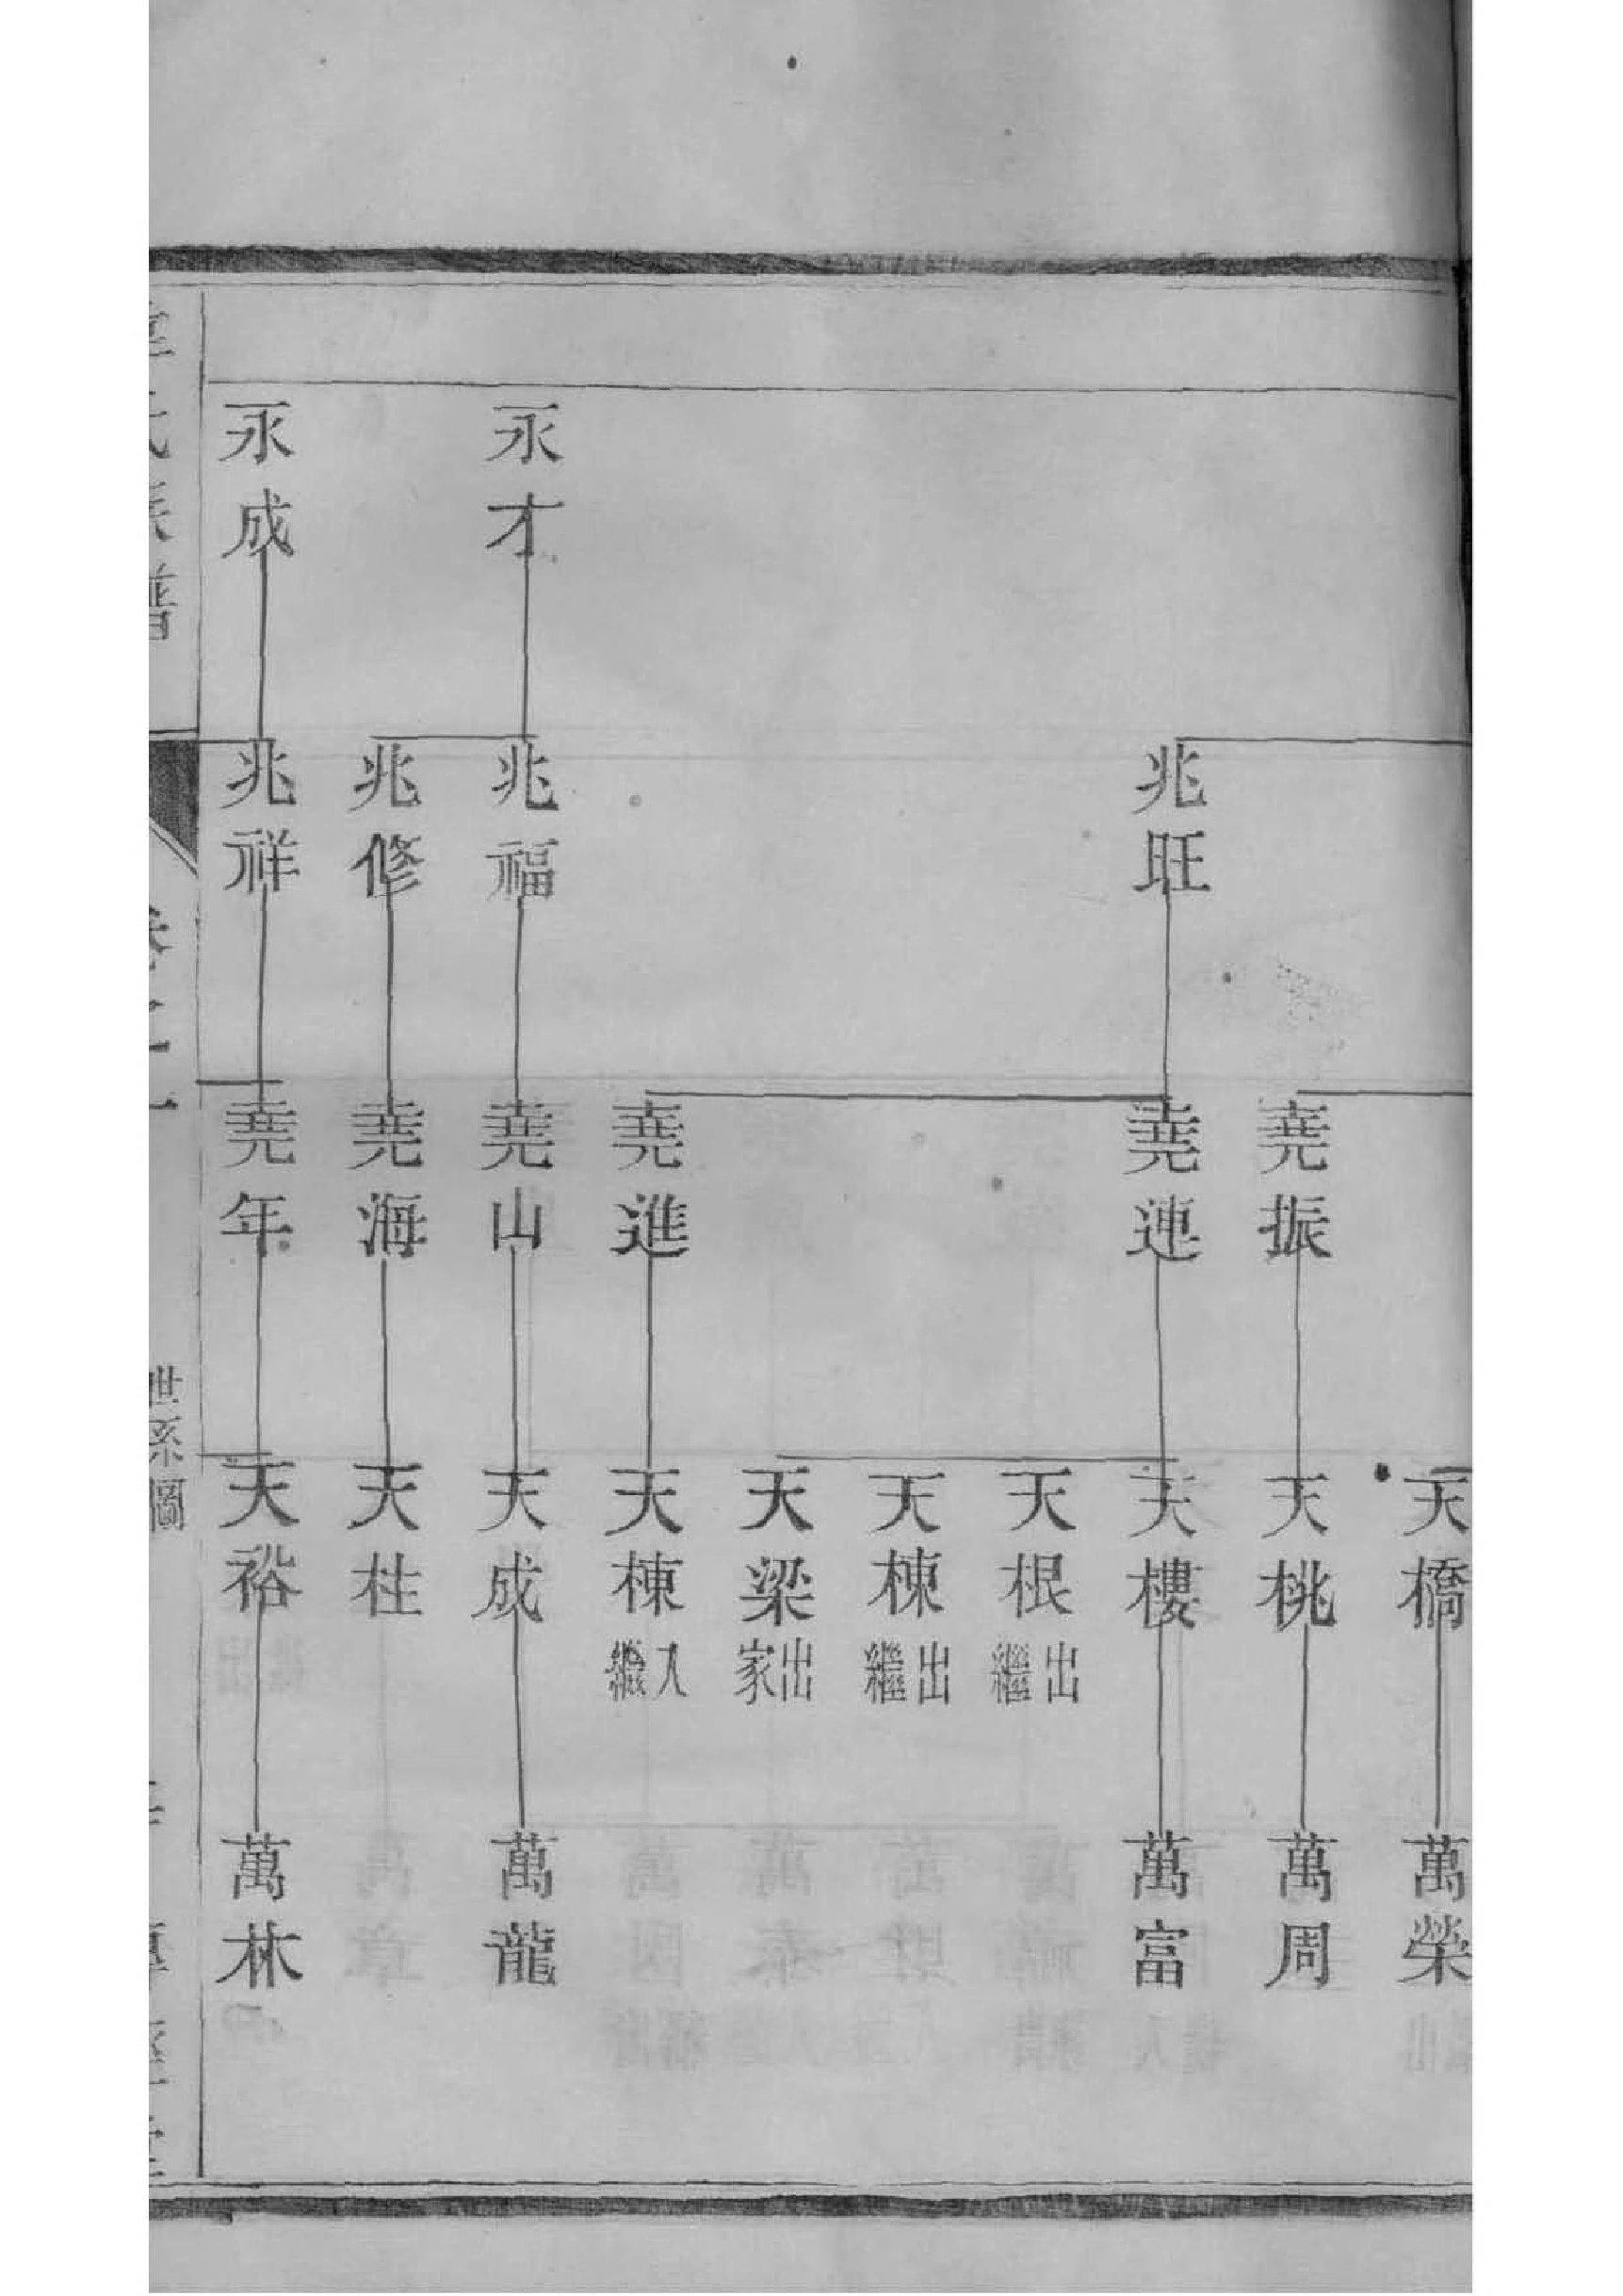 天橋
萬榮
堯振
天桃
萬周
兆旺
堯連
天樓
萬富
天根
出繼
天棟
出繼
天梁
出家
堯進
天棟
入繼
永才
兆福
堯山
天成
萬龍
兆修
堯海
天柱
永成
兆祥
堯年
天裕
萬林
世系圖